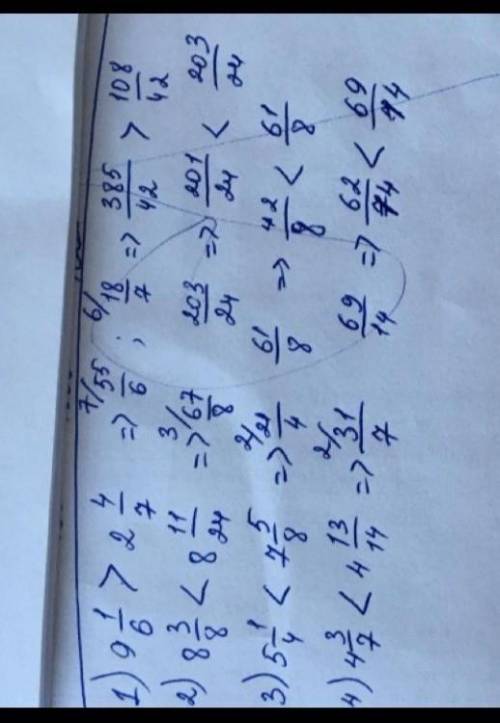 1) 9 1/6 > 2 4/7 => 7/ 55/6 ; 6/ 18/7 => 385/42 > 108/42
2) 8 3/8 < 8 11/24 => 3/ 67/8 203/24 => 201/24 < 203/24
3) 5 1/4 < 7 5/8 => 2/ 21/4 61/8 => 42/8 < 61/8
4) 4 3/7 < 4 13/14 => 2/ 31/7 69/14 => 62/14 < 69/14